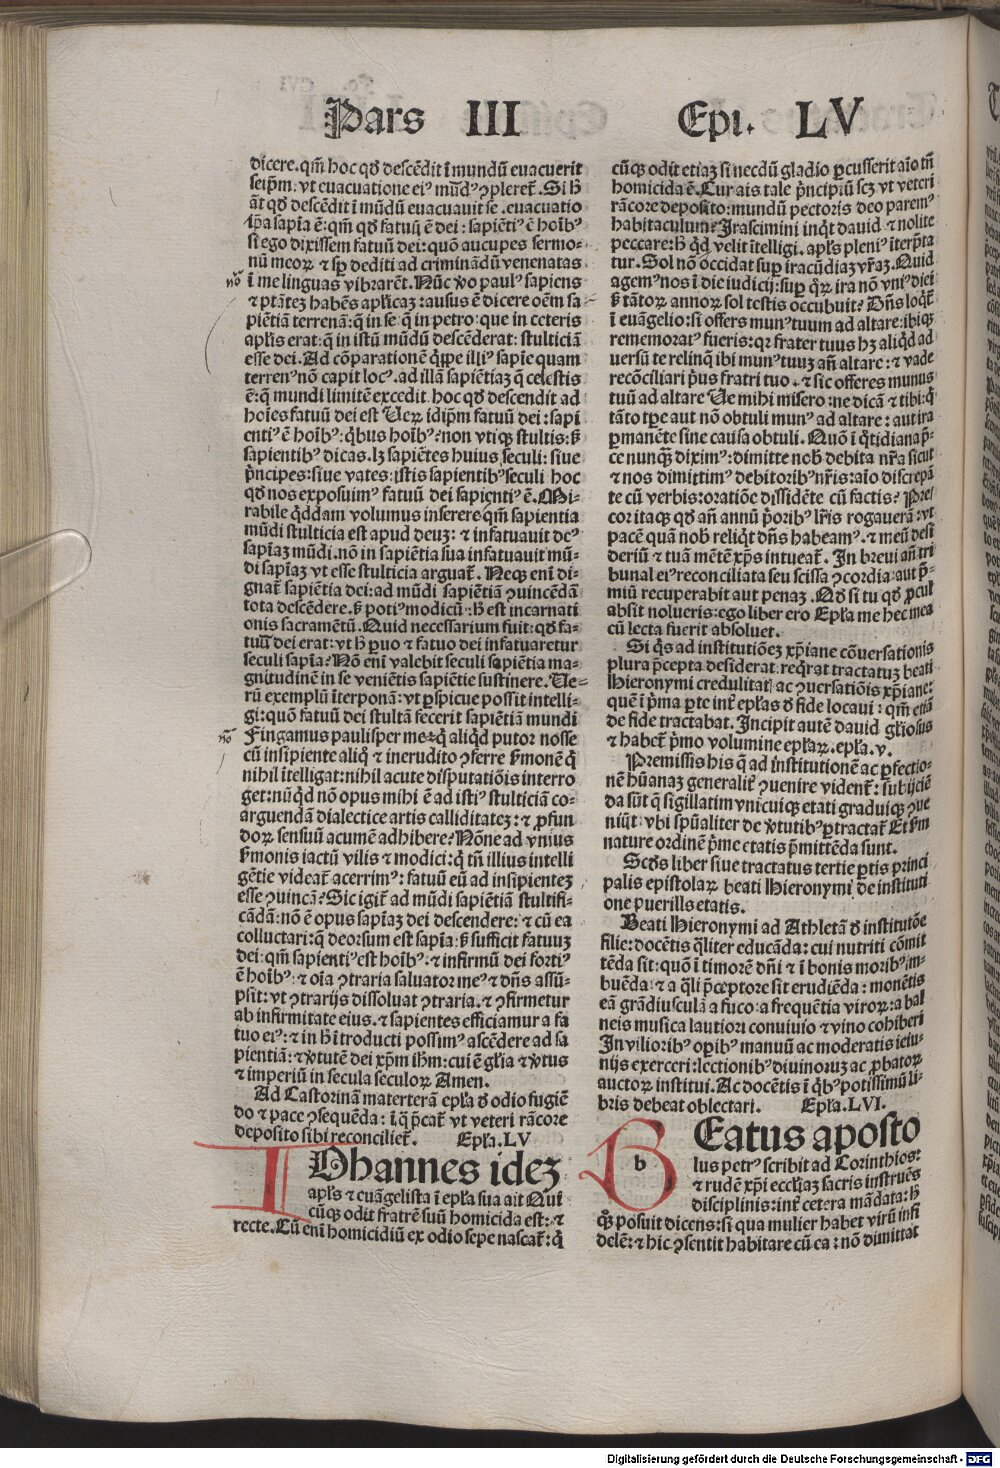 Pars III Epi. LV
dicere. qm̄ hoc qđ descēdit ī mundū euacuerit
seip̄m. vt euacuatione eiꝰ mūdꝰ ꝯpleret̄. Si ħ
āt qđ descēdit ī mūdū euacuauit se. euacuatio
ip̄a sapīa ē: qm̄ qđ fatuū ē dei: sapiētiꝰ ē hoībꝰ
si ego dixissem fatuū dei: quō aucupes sermo⸗
nū meoꝝ ⁊ sp̄ dediti ad criminādū venenatas
ī me linguas vibrarēt. Nūc v̄o paulꝰ sapiens
⁊ ptātez habēs apl̄icaꝫ: ausus ē dicere oēm sa⸗
piētiā terrenā: q̄ in se q̄ in petro: que in ceteris
apl̄is erat: q̄ in istū mūdū descēderat: stulticiā
esse dei. Ad cōparationē q̄ppe illiꝰ sapīe quam
terrenꝰ nō capit locꝰ. ad illā sapiētiaꝫ q̄ celestis
ē: q̄ mundi limitē excedit. hoc qđ descendit ad
hoīes fatuū dei est Ueꝝ idip̄m fatuū dei: sapi
entiꝰ ē hoībꝰ: q̄bus hoībꝰ: non vtiqꝫ stultis: sꝫ
sapientibꝰ dicas. lꝫ sapiētes huius seculi: siue
p̄ncipes: siue vates: istis sapientibꝰ seculi hoc
qđ nos exposuimꝰ fatuū dei sapientiꝰ ē. Mi⸗
rabile q̄ddam volumus inserere qm̄ sapientia
mūdi stulticia est apud deuꝫ: ⁊ infatuauit deꝰ
sapīaꝫ mūdi. nō in sapiētia sua infatuauit mū⸗
di sapīaꝫ vt esse stulticia arguat̄. Neqꝫ enī di⸗
gnat̄ sapiētia dei: ad mūdi sapiētiā ꝯuincēdā
tota descēdere. sꝫ potiꝰ modicū: ħ est incarnati
onis sacramētū. Quid necessarium fuit: qđ fa⸗
tuū dei erat: vt ħ paruo ⁊ fatuo dei infatuaretur
seculi sapīa? Nō enī valebit seculi sapiētia ma⸗
gnitudinē in se veniētis sapiētie sustinere. Ue⸗
rū exemplū īterponā: vt ꝑspicue possit intelli⸗
gi: quō fatuū dei stultā fecerit sapiētiā mundi
Fingamus paulisper me: q̄ aliqđ putor nosse
cū insipiente aliq̄ ⁊ inerudito ꝯferre sꝰmonē q̄
nihil ītelligat: nihil acute disputatiōis interro
get: nūqđ nō opus mihi ē ad istiꝰ stulticiā co⸗
arguendā dialectice artis calliditateꝫ: ⁊ ꝓfun
doꝝ sensuū acumē adhibere? Nōne ad vnius
sꝰmonis iactū vilis ⁊ modici: q̄ tn̄ illius intelli
gētie videat̄ acerrimꝰ: fatuū eū ad insipienteꝫ
esse ꝯuincā? Sic igit̄ ad mūdi sapiētiā stultifi⸗
cādā: nō ē opus sapīaꝫ dei descendere: ⁊ cū ea
colluctari: q̄ deorsum est sapīa: sꝫ sufficit fatuuꝫ
dei: qm̄ sapientiꝰ est hoībꝰ. ⁊ infirmū dei fortiꝰ
ē hoībꝰ: ⁊ oīa ꝯtraria saluator meꝰ ⁊ dn̄s assū⸗
psit: vt ꝯtrarijs dissoluat ꝯtraria. ⁊ ꝯfirmetur
ab infirmitate eius. ⁊ sapientes efficiamur a fa
tuo eiꝰ: ⁊ in ħ ītroducti possimꝰ ascēdere ad sa
pientiā: ⁊ v̄tutē dei xp̄m ihm̄: cui ē gl̄ia ⁊ v̄tus
⁊ imperiū in secula seculoꝝ Amen.
Ad Castorinā materterā epl̄a đ odio fugiē
do ⁊ pace ꝯsequēda: ī q̄ p̄cat̄ vt veteri rācore
deposito sibi reconciliet̄. Epl̄a. LV
IOhannes ideꝫ
apl̄s ⁊ euāgelista ī epl̄a sua ait Qui
cūqꝫ odit fratrē suū homicida est: ⁊
recte. Cū enī homicidiū ex odio sepe nascat̄: q̄
cūqꝫ odit etiaꝫ si necdū gladio ꝑcusserit aīo tn̄
homicida ē. Cur ais tale p̄ncipiū scꝫ vt veteri
rācore deposito: mundū pectoris deo paremꝰ
habitaculum? Irascimini inq̄t dauid ⁊ nolite
peccare: ħ qđ velit ītelligi. apl̄s pleniꝰ īterp̄ta
tur. Sol nō occidat suꝑ iracūdiaꝫ vr̄aꝫ. Quid
agemꝰ nos ī die iudicij: suꝑ q̄ꝝ ira nō vniꝰ diei
sꝫ tātoꝝ annoꝝ sol testis occubuit? Dn̄s loqt̄
ī euāgelio: si offers munꝰ tuum ad altare: ibiqꝫ
rememoratꝰ fueris: qꝛ frater tuus hꝫ aliqđ ad
uersū te relinq̄ ibi munꝰ tuuꝫ an̄ altare: ⁊ vade
recōciliari p̄us fratri tuo. ⁊ sic offeres munus
tuū ad altare Ue mihi misero: ne dicā ⁊ tibi: q̄
tāto tꝑe aut nō obtuli munꝰ ad altare: aut ira
ꝑmanēte sine causa obtuli. Quō ī q̄tidiana p̄⸗
ce nunqꝫ diximꝰ: dimitte nob̄ debita nr̄a sicut
⁊ nos dimittimꝰ debitoribꝰ nr̄is: aīo discrepā
te cū verbis: oratiōe dissidēte cū factis? Pre/
cor itaqꝫ qđ an̄ annū p̄oribꝰ lr̄is rogauerā: vt
pacē quā nob̄ reliq̄t dn̄s habeamꝰ. ⁊ meū desi
deriū ⁊ tuā mētē xp̄s intueat̄. In breui an̄ tri
bunal eiꝰ reconciliata seu scissa ꝯcordia: aut p̄⸗
miū recuperabit aut penaꝫ. Qđ si tu qđ ꝓcul
absit nolueris: ego liber ero Epl̄a me hec mea
cū lecta fuerit absoluet.
Si q̄s ad institutiōeꝫ xp̄iane cōuersationis
plura p̄cepta desiderat: reqrat tractatuꝫ beati
Hieronymi credulitat̄ ac ꝯuersatiōis xp̄iane:
quē ī p̄ma ꝑte int̄ epl̄as đ fide locaui: qm̄ etiā
de fide tractabat. Incipit autē dauid gl̄iosus
⁊ habet̄ p̄mo volumine epl̄aꝝ. epl̄a. v.
Premissis his q̄ ad institutionē ac ꝑfectio⸗
nē hūanaꝫ generalit̄ ꝯuenire vident̄: subijciē
da sūt q̄ sigillatim vnicuiqꝫ etati graduiqꝫ ꝯue
niūt: vbi sp̄ualiter de v̄tutibꝰ ꝑtractat̄ Et p̄m
nature ordinē p̄me etatis p̄mittēda sunt.
Scđs liber siue tractatus tertie ꝑtis princi
palis epistolaꝝ beati Hieronymi de instituti
one puerilis etatis.
Beati Hieronymi ad Athletā đ institutōe
filie: docētis q̄liter educāda: cui nutriti cōmit
tēda sit: quō ī timorē dn̄i ⁊ ī bonis moribꝰ im⸗
buēda: ⁊ a q̄li p̄ceptore sit erudiēda: monētis
eā grādiusculā a fuco: a frequētia viroꝝ: a bal
neis musica lautiori conuiuio ⁊ vino cohiberi
In vilioribꝰ oꝑibꝰ manuū ac moderatis ieiu⸗
nijs exerceri: lectionibꝰ diuinoruꝫ ac ꝓbatoꝝ
auctoꝝ institui. Ac docētis ī q̄bꝰ potissimū li⸗
bris debeat oblectari. Epl̄a. LVI.
BEatus aposto
b
lus petrꝰ scribit ad Corinthios:
⁊ rudē xp̄i eccl̄iaꝫ sacris instruēs
disciplinis: int̄ cetera mādata: ħ
q̄ꝫ posuit dicens: si qua mulier habet virū infi
delē: ⁊ hic ꝯsentit habitare cū ea: nō dimittat
no
no
Digitalisierung gefördert durch die Deutsche Forschungsgemeinschaft - DFG